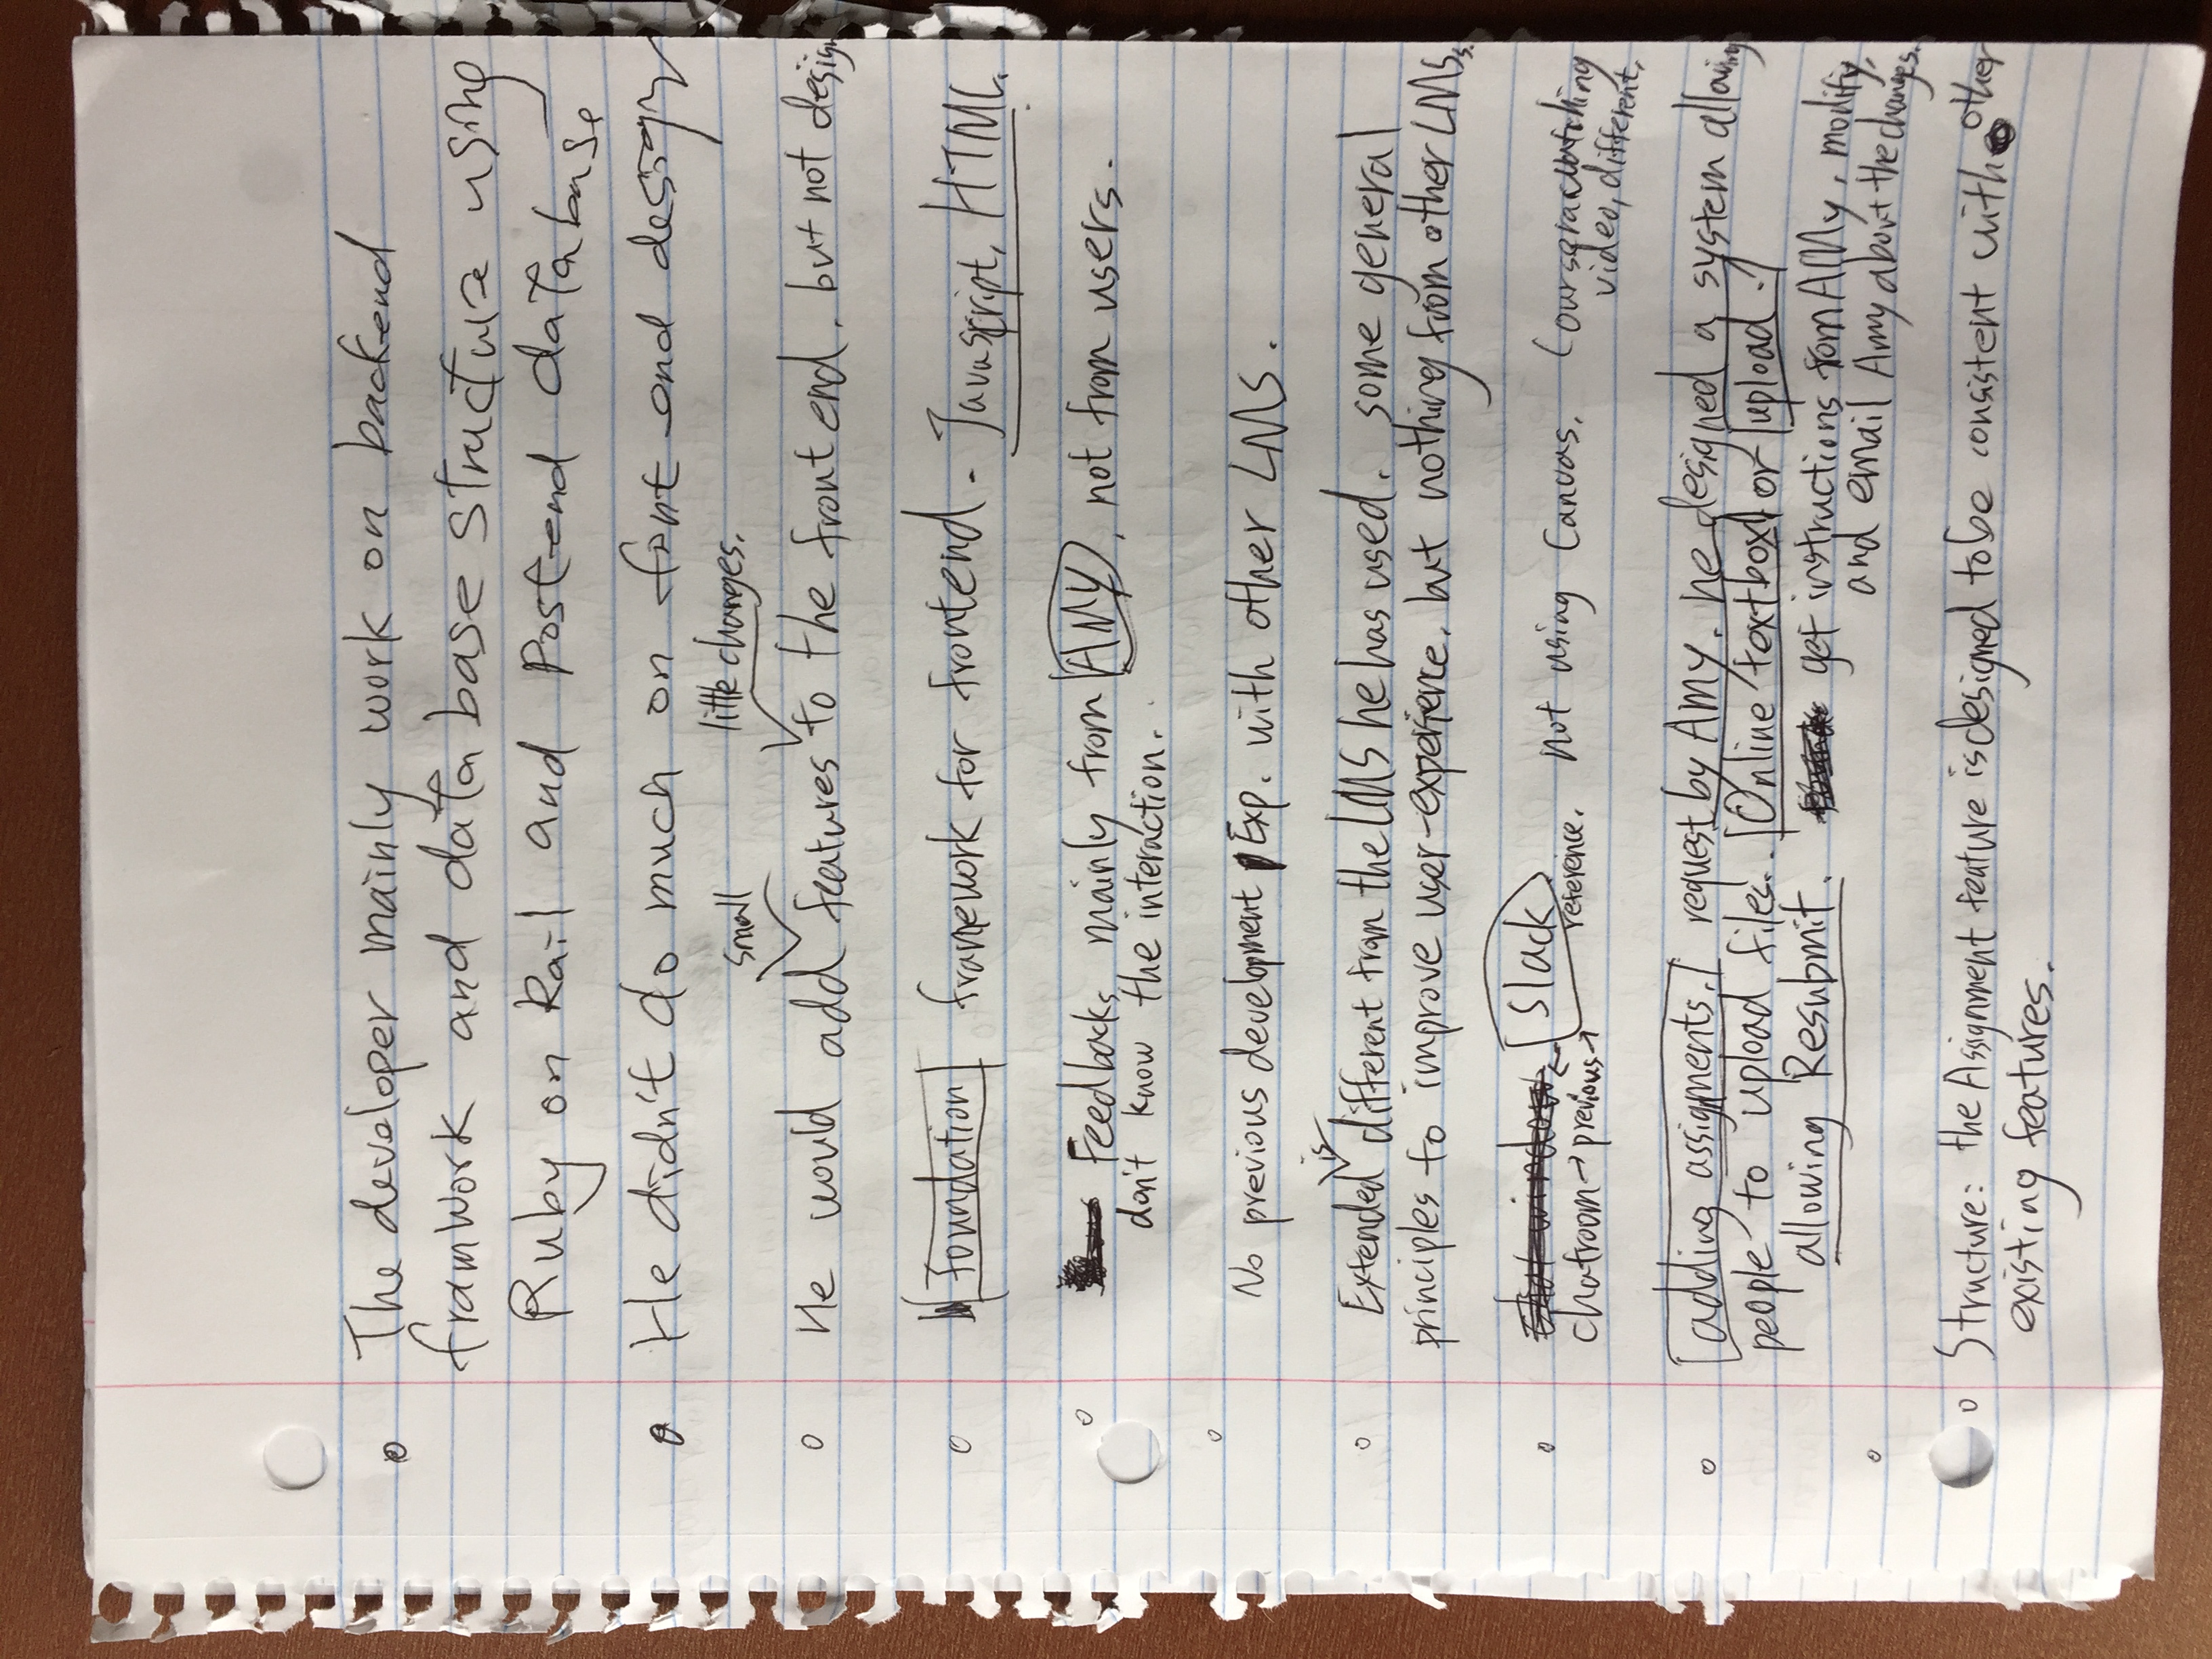 The developer mainly work on backend
framwork and data base structure using
Ruby on Rail and Postend database
He didn't do much on font end design
small little changes.
He would add features to the front end. but not design
Foundation framework for frontend - Javascript, HTML.
Feedbacks, mainly from AMY, not from users.
don't know the interaction.
No previous development Exp. with other LMS.
is
Extended different from the LMS he has used. some general
principles to improve user-experience. but nothing from other LMSs.
chat window ← Slack
chatroom → previous → reference. not using Canvas. Coursera watching
video, different.
adding assigments. request by Amy. he designed a system allowing
people to upload files.. Online textbox or upload.
allowing Resubmit. get instructions from AMy, modify,
and email Amy about the changes.
Structure: the Assignment feature is designed to be consistent with other
existing features.